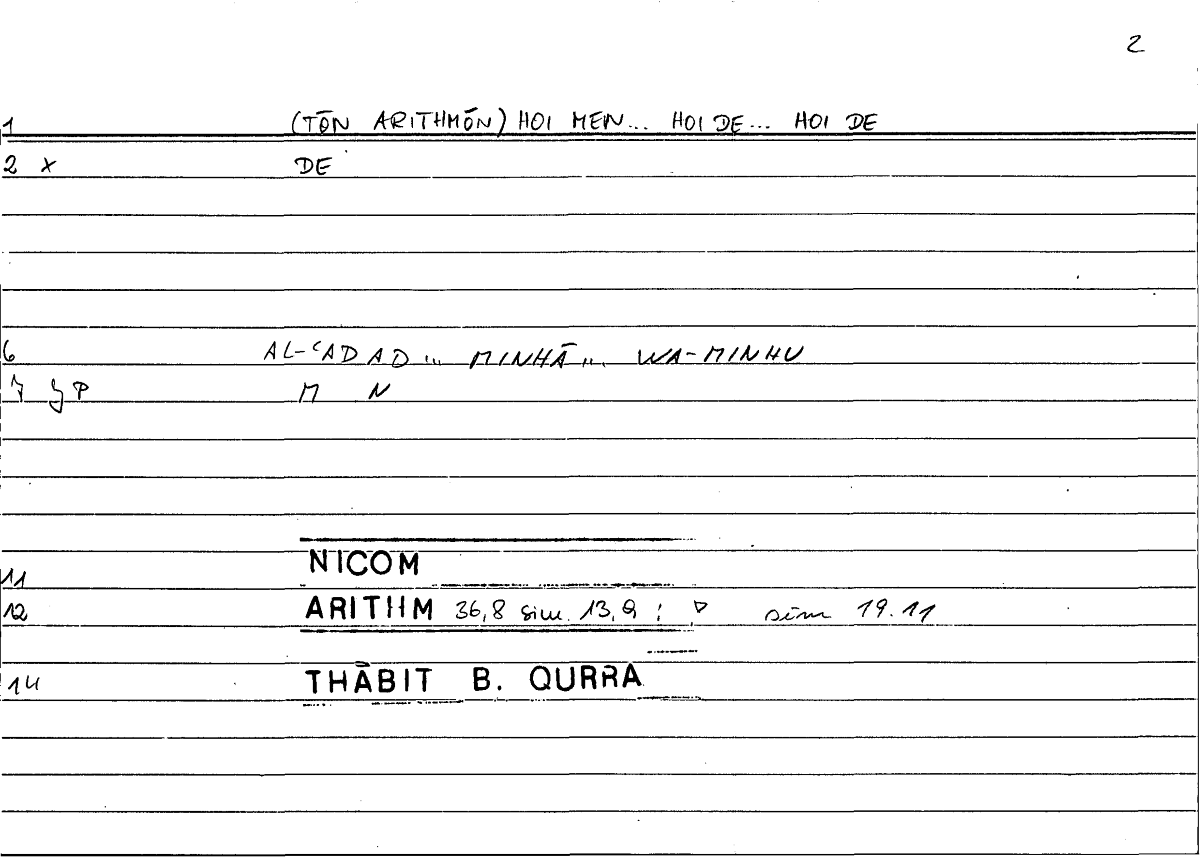 2
1 (TŌN ARITHMŌN) HOI MEN... HOI DE... HOI DE
2 x DE
6 AL-ʿADAD ... MINHĀ ... WA-MINHU
7 M N
11 NICOM
12 ARITHM 36,8 sim. 13,9 ; sim 19.11
14 THĀBIT B. QURRA